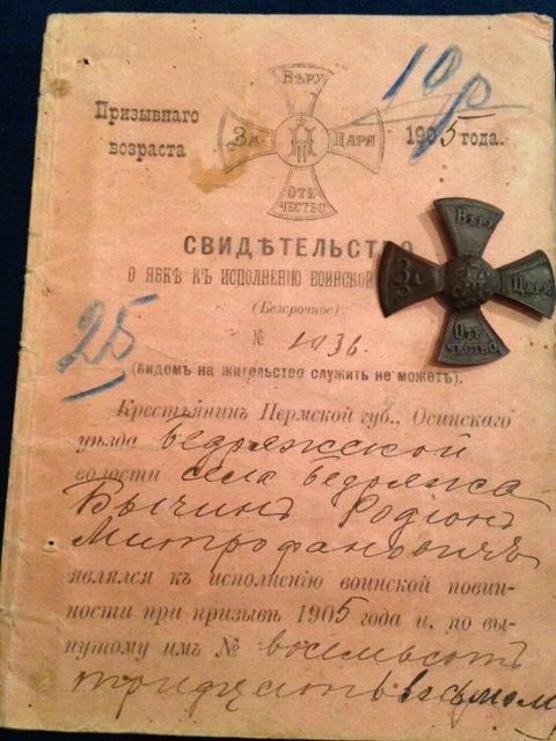 19р
Призывнаго
возраста
ВѢРУ
ЗА
Н
ЦАРЯ
ОТЕ
ЧЕСТВО
1905 года.
СВИДѢТЕЛЬСТВО
О ЯВКѢ КЪ ИСПОЛНЕНІЮ ВОИНСКОЙ
(Безсрочное)
25
№ 1036.
(видомъ на жительство служить не можетъ).
ВѢРУ
ЗА
ЦАРЯ
ОТЕ
ЧЕСТВО
Крестьянинъ Пермской губ., Осинскаго
уѣзда Бедряжской
волости села Бедряжа
Бычинъ Родіонъ
Митрофановичъ
являлся къ исполненію воинской повин-
ности при призывѣ 1905 года и, по вы-
нутому имъ № восемьсотъ
тридцать восьмом